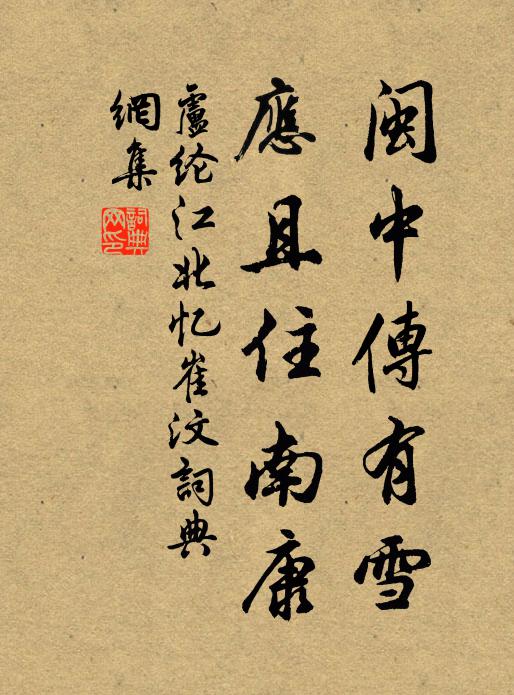 閩中傳有雪
應且住南康
盧纶江北忆崔汶詞典
網集
詞典
网印